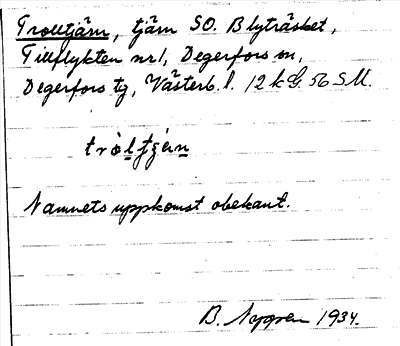 Trolltjärn, tjärn SO. Blyträsket,
Tillflykten nr 1, Degerfors sn,
Degerfors tg, Västerb. l. 12 k G. 56 S M.
Namnets uppkomst obekant.
B. Nygren 1934.